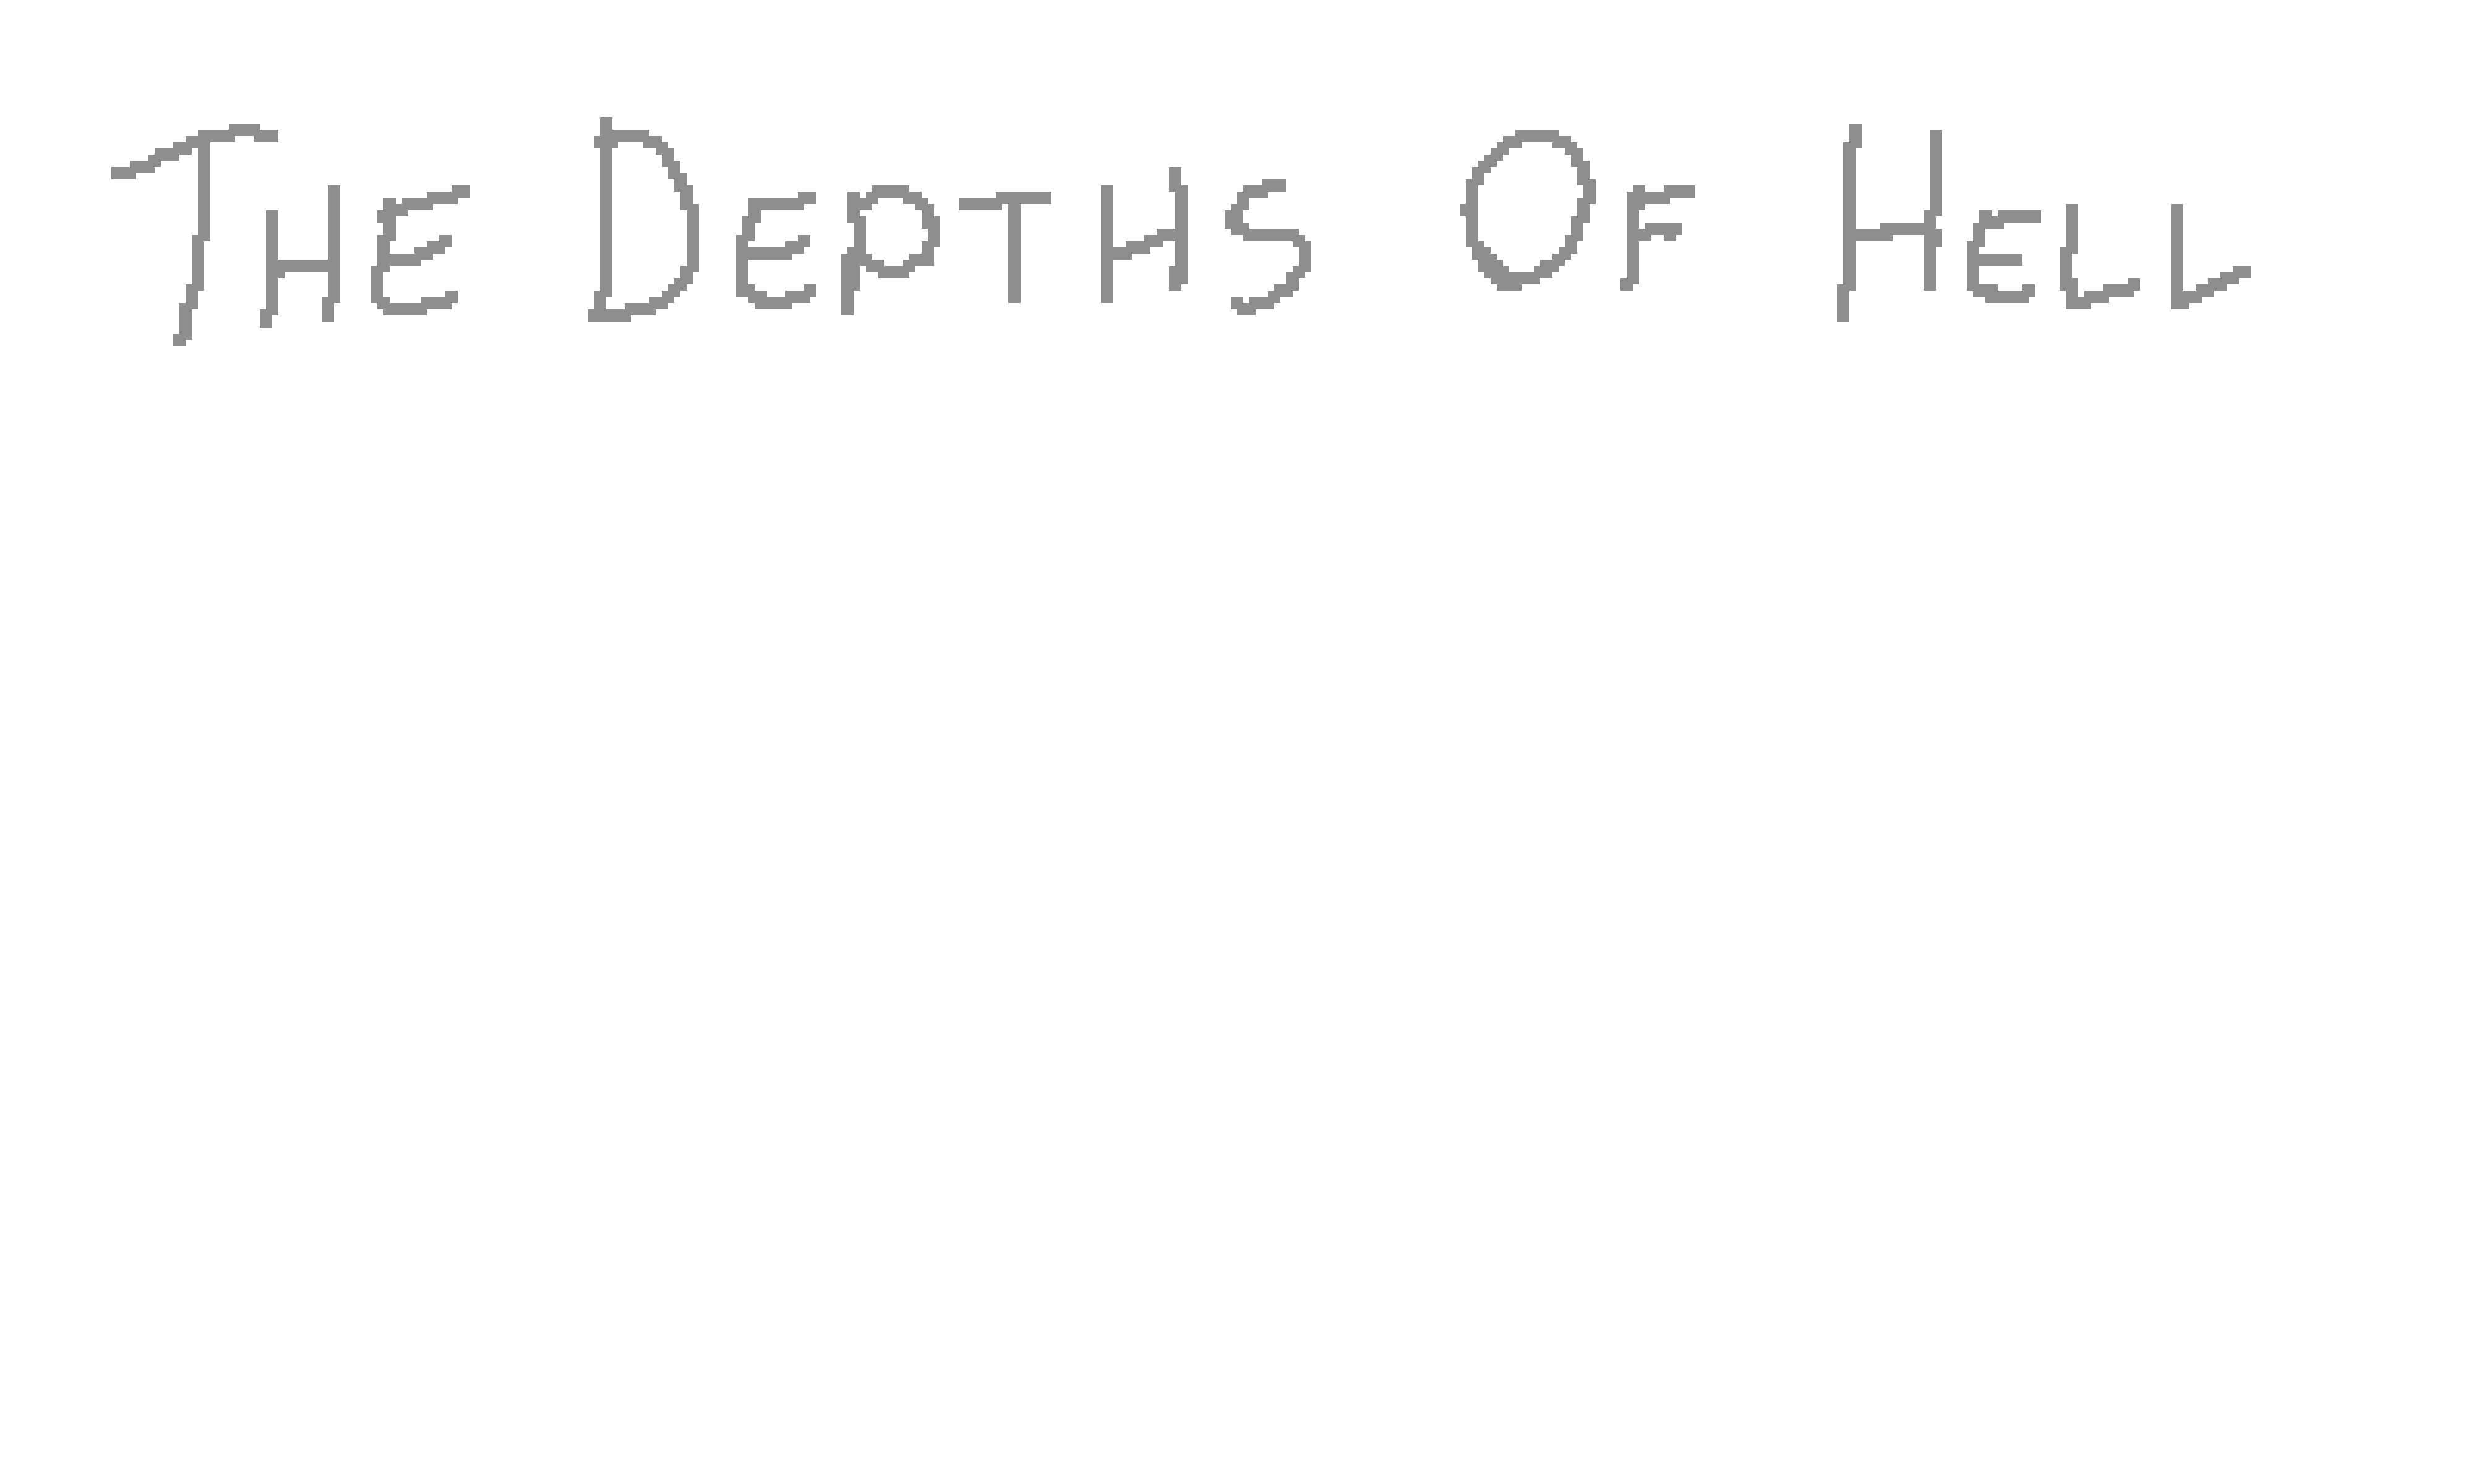 The Depths Of Hell